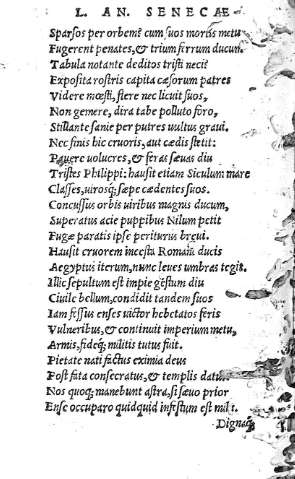 L. AN. SENECAE
Sparsos per orbem & cum suos mortis metu
Fugerent penates, & trium ferrum ducum.
Tabula notante deditos tristi neci:
Exposita rostris capita cæsorum patres
Videre mœsti, flere nec licuit suos,
Non gemere, dira tabe polluto foro,
Stillante sanie per putres uultus graui.
Nec finis hic cruoris, aut cædis stetit:
Pauere uolucres, & feras sæuas diu
Tristes Philippi: hausit etiam Siculum mare
Classes, uirosq; sæpe cædentes suos.
Concussus orbis uiribus magnus ducum,
Superatus acie puppibus Nilum petit
Fugæ paratis ipse periturus breui.
Hausit cruorem incesta Romani ducis
Aegyptus iterum, nunc leues umbras tegit.
Illic sepultum est impie gestum diu
Ciuile bellum, condidit tandem suos
Iam fessus enses uictor hebetatos feris
Vulneribus, & continuit imperium metu,
Armis, fideq; militis tutus fuit.
Pietate nati factus eximia deus
Post fata consecratus, & templis
Nos quoq; manebunt astra, si sæuo prior
Ense occuparo quidquid infestum est